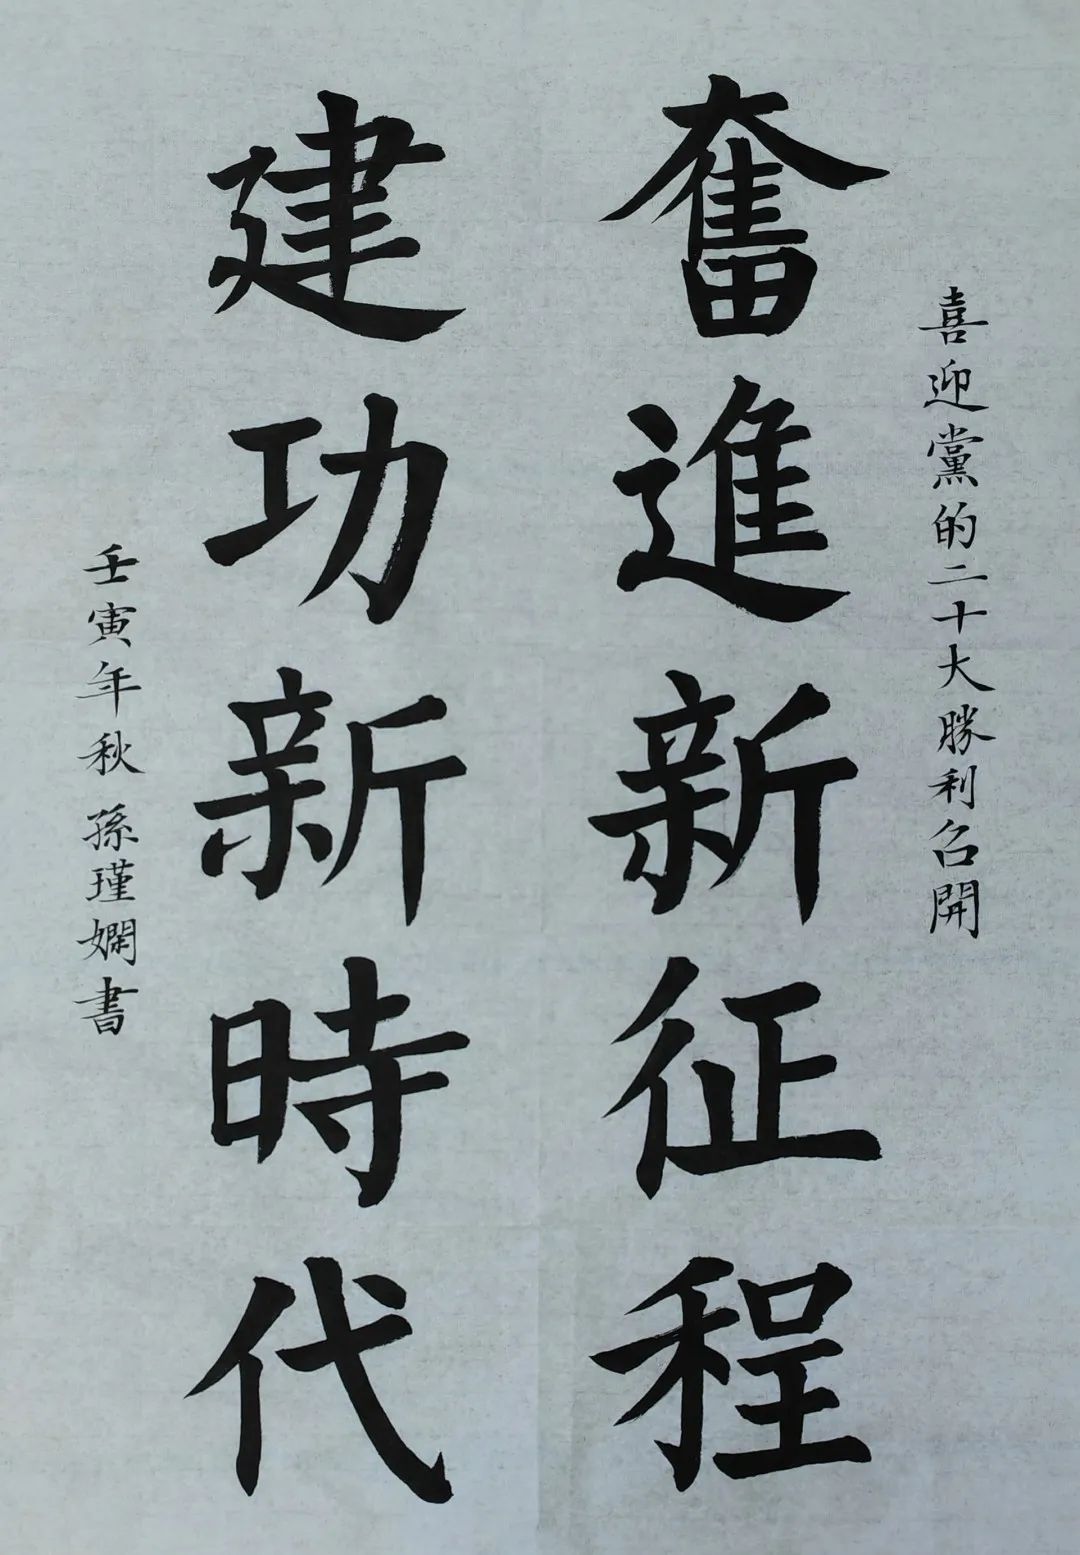 喜迎黨的二十大勝利召開
奮進新征程
建功新時代
壬寅年秋孫瑾嫻書